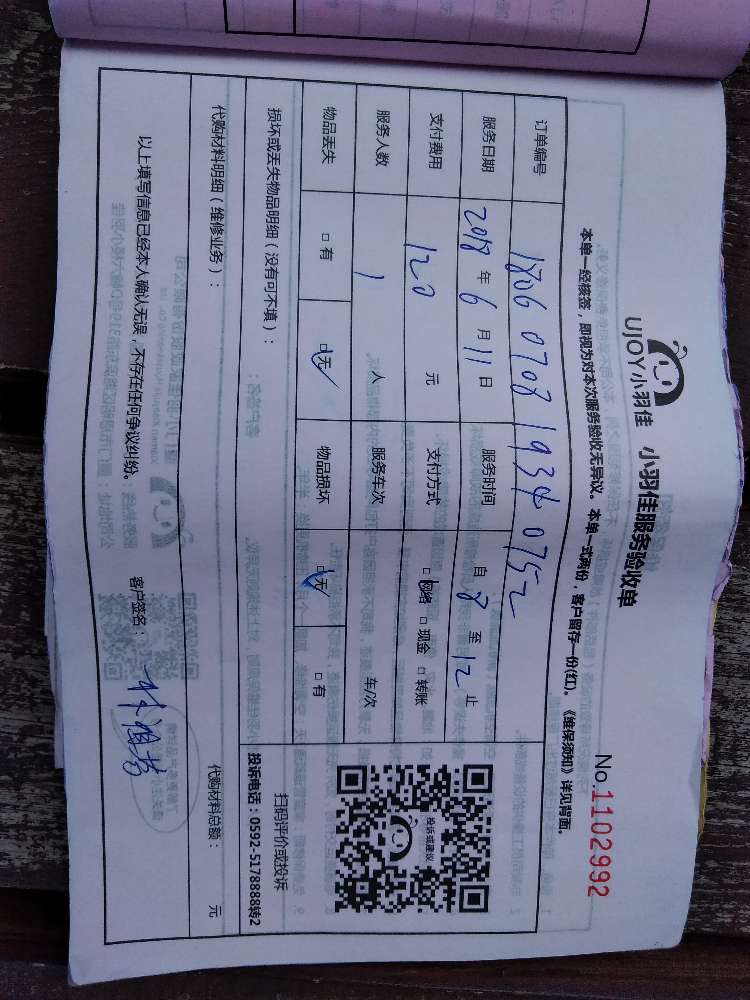 UJOY小羽佳 小羽佳服务验收单
No.1102992
本单一经核签，即视为对本次服务验收无异议。本单一式两份，客户留存一份(红)。《维保须知》详见背面。
订单编号 1806 0708 1934 0752
服务日期 2018 年 6 月 11 日 服务时间 自 8 至 12 止
支付费用 120 元 支付方式 □网络 □现金 □转账
服务人数 1 人 服务车次 车/次
物品丢失 □有 □无 物品损坏 □无 □有
投诉或建议
扫码评价或投诉
投诉电话：0592-5178888转2
损坏或丢失物品明细（没有可不填）：
代购材料明细（维修业务）： 代购材料总额： 元
以上填写信息已经本人确认无误，不存在任何争议纠纷。 客户签名：